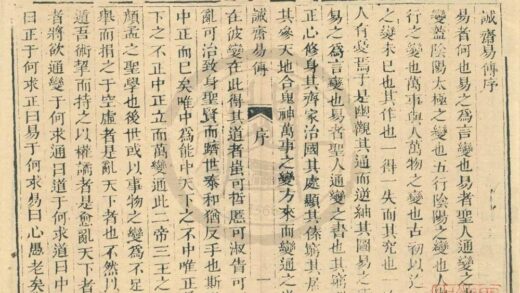 誠齋易傳序
易者何也易之爲言變也易者聖人通變之
變蓋陰陽太極之變也五行陰陽之變也人
行之變也萬事人與萬物之變也古初以
之變未已也其作也一得一失而其究也一
人有憂焉于是幽觀其通而逆紬其圖易之
易之爲言變也易者聖人通變之書也其窮
正心修身其齊家治國其處顯其傃窮其居
其參天地合鬼神萬事之變方來而變通之
序
一
在彼變在此得其道者蚩可哲慝可淑眚可
亂可治致身聖賢而躋世泰和猶反手也斯
中正而已矣唯中爲能中天下之不中唯正
下之不正中正立而萬變通此二帝三王之
顏孟之聖學也後世或以事物之變爲不足
舉而捐之于空虛者是亂天下者也不然以
遁吾術挈而持之以權譎者是愈亂天下者
者將欲通變于何求通曰道于何求道曰中
曰正于何求正曰易于何求易曰心愚老矣